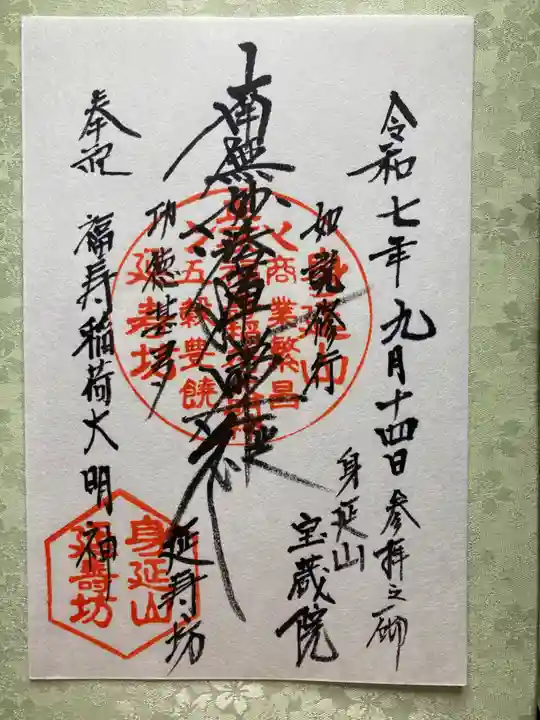 令和七年九月十四日参拝之砌
身延山
宝蔵院
如説修行
南無妙法蓮華経
功徳甚多
延寿坊
奉祝
福寿稲荷大明神
身延山
商業繁昌
五穀豊饒
延寿坊
身延山
延壽坊